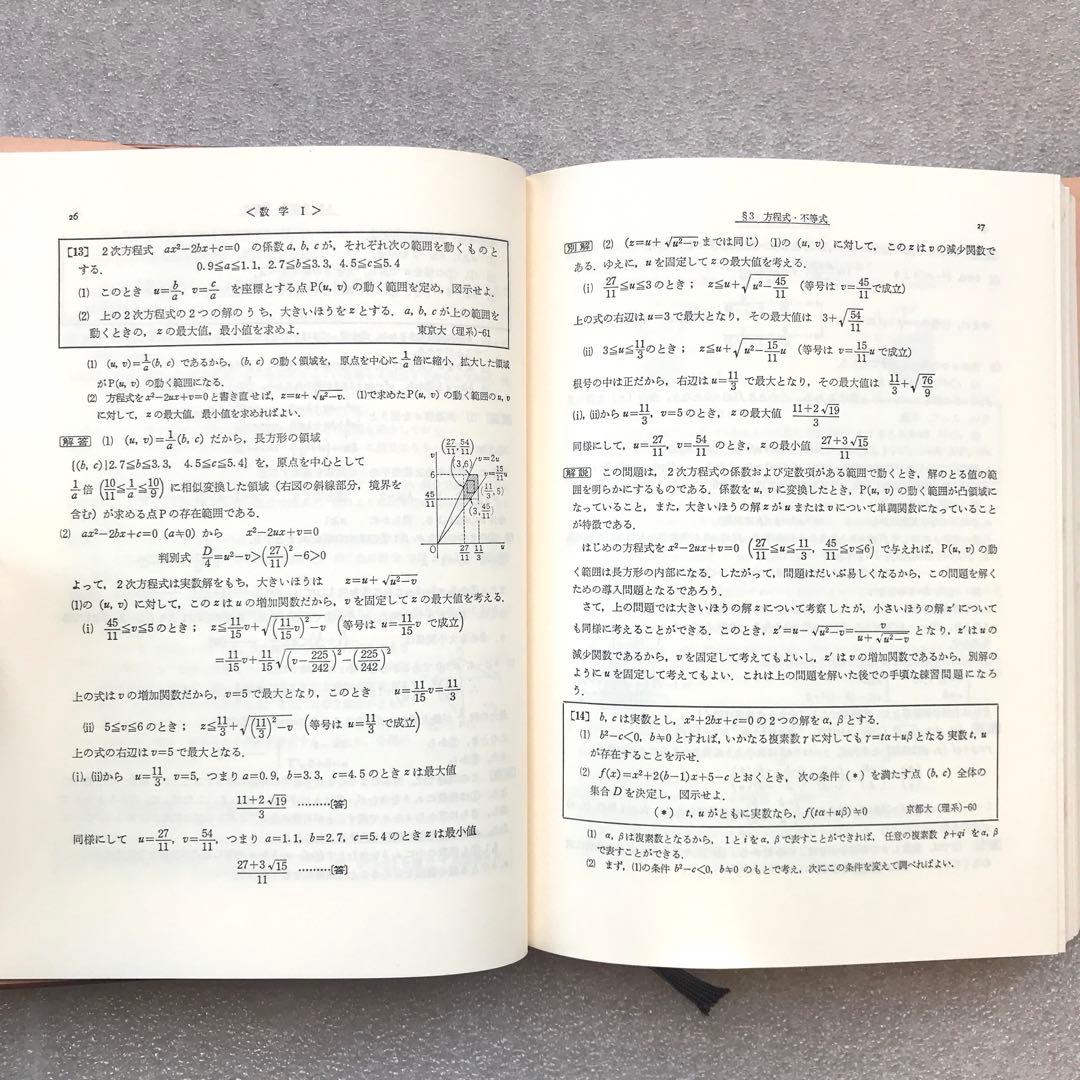 26
＜数 学 Ⅰ＞
[13] 2次方程式 ax²−2bx+c=0 の係数 a, b, c が，それぞれ次の範囲を動くものと
する． 0.9≦a≦1.1, 2.7≦b≦3.3, 4.5≦c≦5.4
(1) このとき u=b/a, v=c/a を座標とする点 P(u, v) の動く範囲を定め，図示せよ．
(2) 上の2次方程式の2つの解のうち，大きいほうを z とする． a, b, c が上の範囲を
動くときの，z の最大値，最小値を求めよ． 東京大（理系)-61
(1) (u, v)=1/a(b, c) であるから，(b, c) の動く領域を，原点を中心に 1/a 倍に縮小，拡大した領域
が P(u, v) の動く範囲になる．
(2) 方程式を x²−2ux+v=0 と書き直せば，z=u+√(u²−v)． (1)で求めた P(u, v) の動く範囲の u, v
に対して，z の最大値，最小値を求めればよい．
解答 (1) (u, v)=1/a(b, c) だから，長方形の領域
{(b, c)|2.7≦b≦3.3, 4.5≦c≦5.4} を，原点を中心として
1/a 倍 (10/11≦1/a≦10/9) に相似変換した領域（右図の斜線部分，境界を
含む）が求める点 P の存在範囲である．
(27/11, 54/11)
v
(3,6)
v=2u
6
v=15/11 u
(11/3, 5)
45/11
(3, 45/11)
O
27/11
11/3
u
(2) ax²−2bx+c=0 (a≠0) から x²−2ux+v=0
判別式 D/4=u²−v>(27/11)²−6>0
よって，2次方程式は実数解をもち，大きいほうは z=u+√(u²−v)
(1)の (u, v) に対して，この z は u の増加関数だから，v を固定して z の最大値を考える．
(i) 45/11≦v≦5 のとき； z≦11/15 v+√((11/15 v)²−v) (等号は u=11/15 v で成立)
=11/15 v+11/15 √((v−225/242)²−(225/242)²)
上の式は v の増加関数だから，v=5 で最大となり，このとき u=11/15 v=11/3
(ii) 5≦v≦6 のとき； z≦11/3+√((11/3)²−v) (等号は u=11/3 で成立)
上の式の右辺は v=5 で最大となる．
(i), (ii)から u=11/3, v=5, つまり a=0.9, b=3.3, c=4.5 のとき z は最大値
(11+2√19)/3 ………[答]
同様にして u=27/11, v=54/11, つまり a=1.1, b=2.7, c=5.4 のとき z は最小値
(27+3√15)/11 ………[答]
§3 方程式・不等式
27
別解 (2) (z=u+√(u²−v) までは同じ) (1)の (u, v) に対して，この z は v の減少関数で
ある．ゆえに，u を固定して z の最大値を考える．
(i) 27/11≦u≦3 のとき； z≦u+√(u²−45/11) (等号は v=45/11 で成立)
上の式の右辺は u=3 で最大となり，その最大値は 3+√(54/11)
(ii) 3≦u≦11/3 のとき； z≦u+√(u²−15/11 u) (等号は v=15/11 u で成立)
根号の中は正だから，右辺は u=11/3 で最大となり，その最大値は 11/3+√(76/9)
(i), (ii)から u=11/3, v=5 のとき，z の最大値 (11+2√19)/3
同様にして，u=27/11, v=54/11 のとき，z の最小値 (27+3√15)/11
解説 この問題は，2次方程式の係数および定数項がある範囲で動くとき，解のとる値の範
囲を明らかにするものである．係数を u, v に変換したとき，P(u, v) の動く範囲が凸領域に
なっていること，また，大きいほうの解 z が u または v について単調関数になっていること
が特徴である．
はじめの方程式を x²−2ux+v=0 (27/11≦u≦11/3, 45/11≦v≦6) で与えれば，P(u, v) の動
く範囲は長方形の内部になる．したがって，問題はだいぶ易しくなるから，この問題を解く
ための導入問題となるであろう．
さて，上の問題では大きいほうの解 z について考察したが，小さいほうの解 z′ について
も同様に考えることができる．このとき，z′=u−√(u²−v)=v/(u+√(u²−v)) となり，z′ は u の
減少関数であるから，v を固定して考えてもよいし，z′ は v の増加関数であるから，別解の
ように u を固定して考えてもよい．これは上の問題を解いた後での手頃な練習問題になろ
う．
[14] b, c は実数とし，x²+2bx+c=0 の2つの解を α, β とする．
(1) b²−c<0, b≠0 とすれば，いかなる複素数 γ に対しても γ=tα+uβ となる実数 t, u
が存在することを示せ．
(2) f(x)=x²+2(b−1)x+5−c とおくとき，次の条件 (＊) を満たす点 (b, c) 全体の
集合 D を決定し，図示せよ．
(＊) t, u がともに実数なら，f(tα+uβ)≠0 京都大（理系)-60
(1) α, β は複素数となるから，1 と i を α, β で表すことができれば，任意の複素数 p+qi を α, β
で表すことができる．
(2) まず，(1)の条件 b²−c<0, b≠0 のもとで考え，次にこの条件を変えて調べればよい．